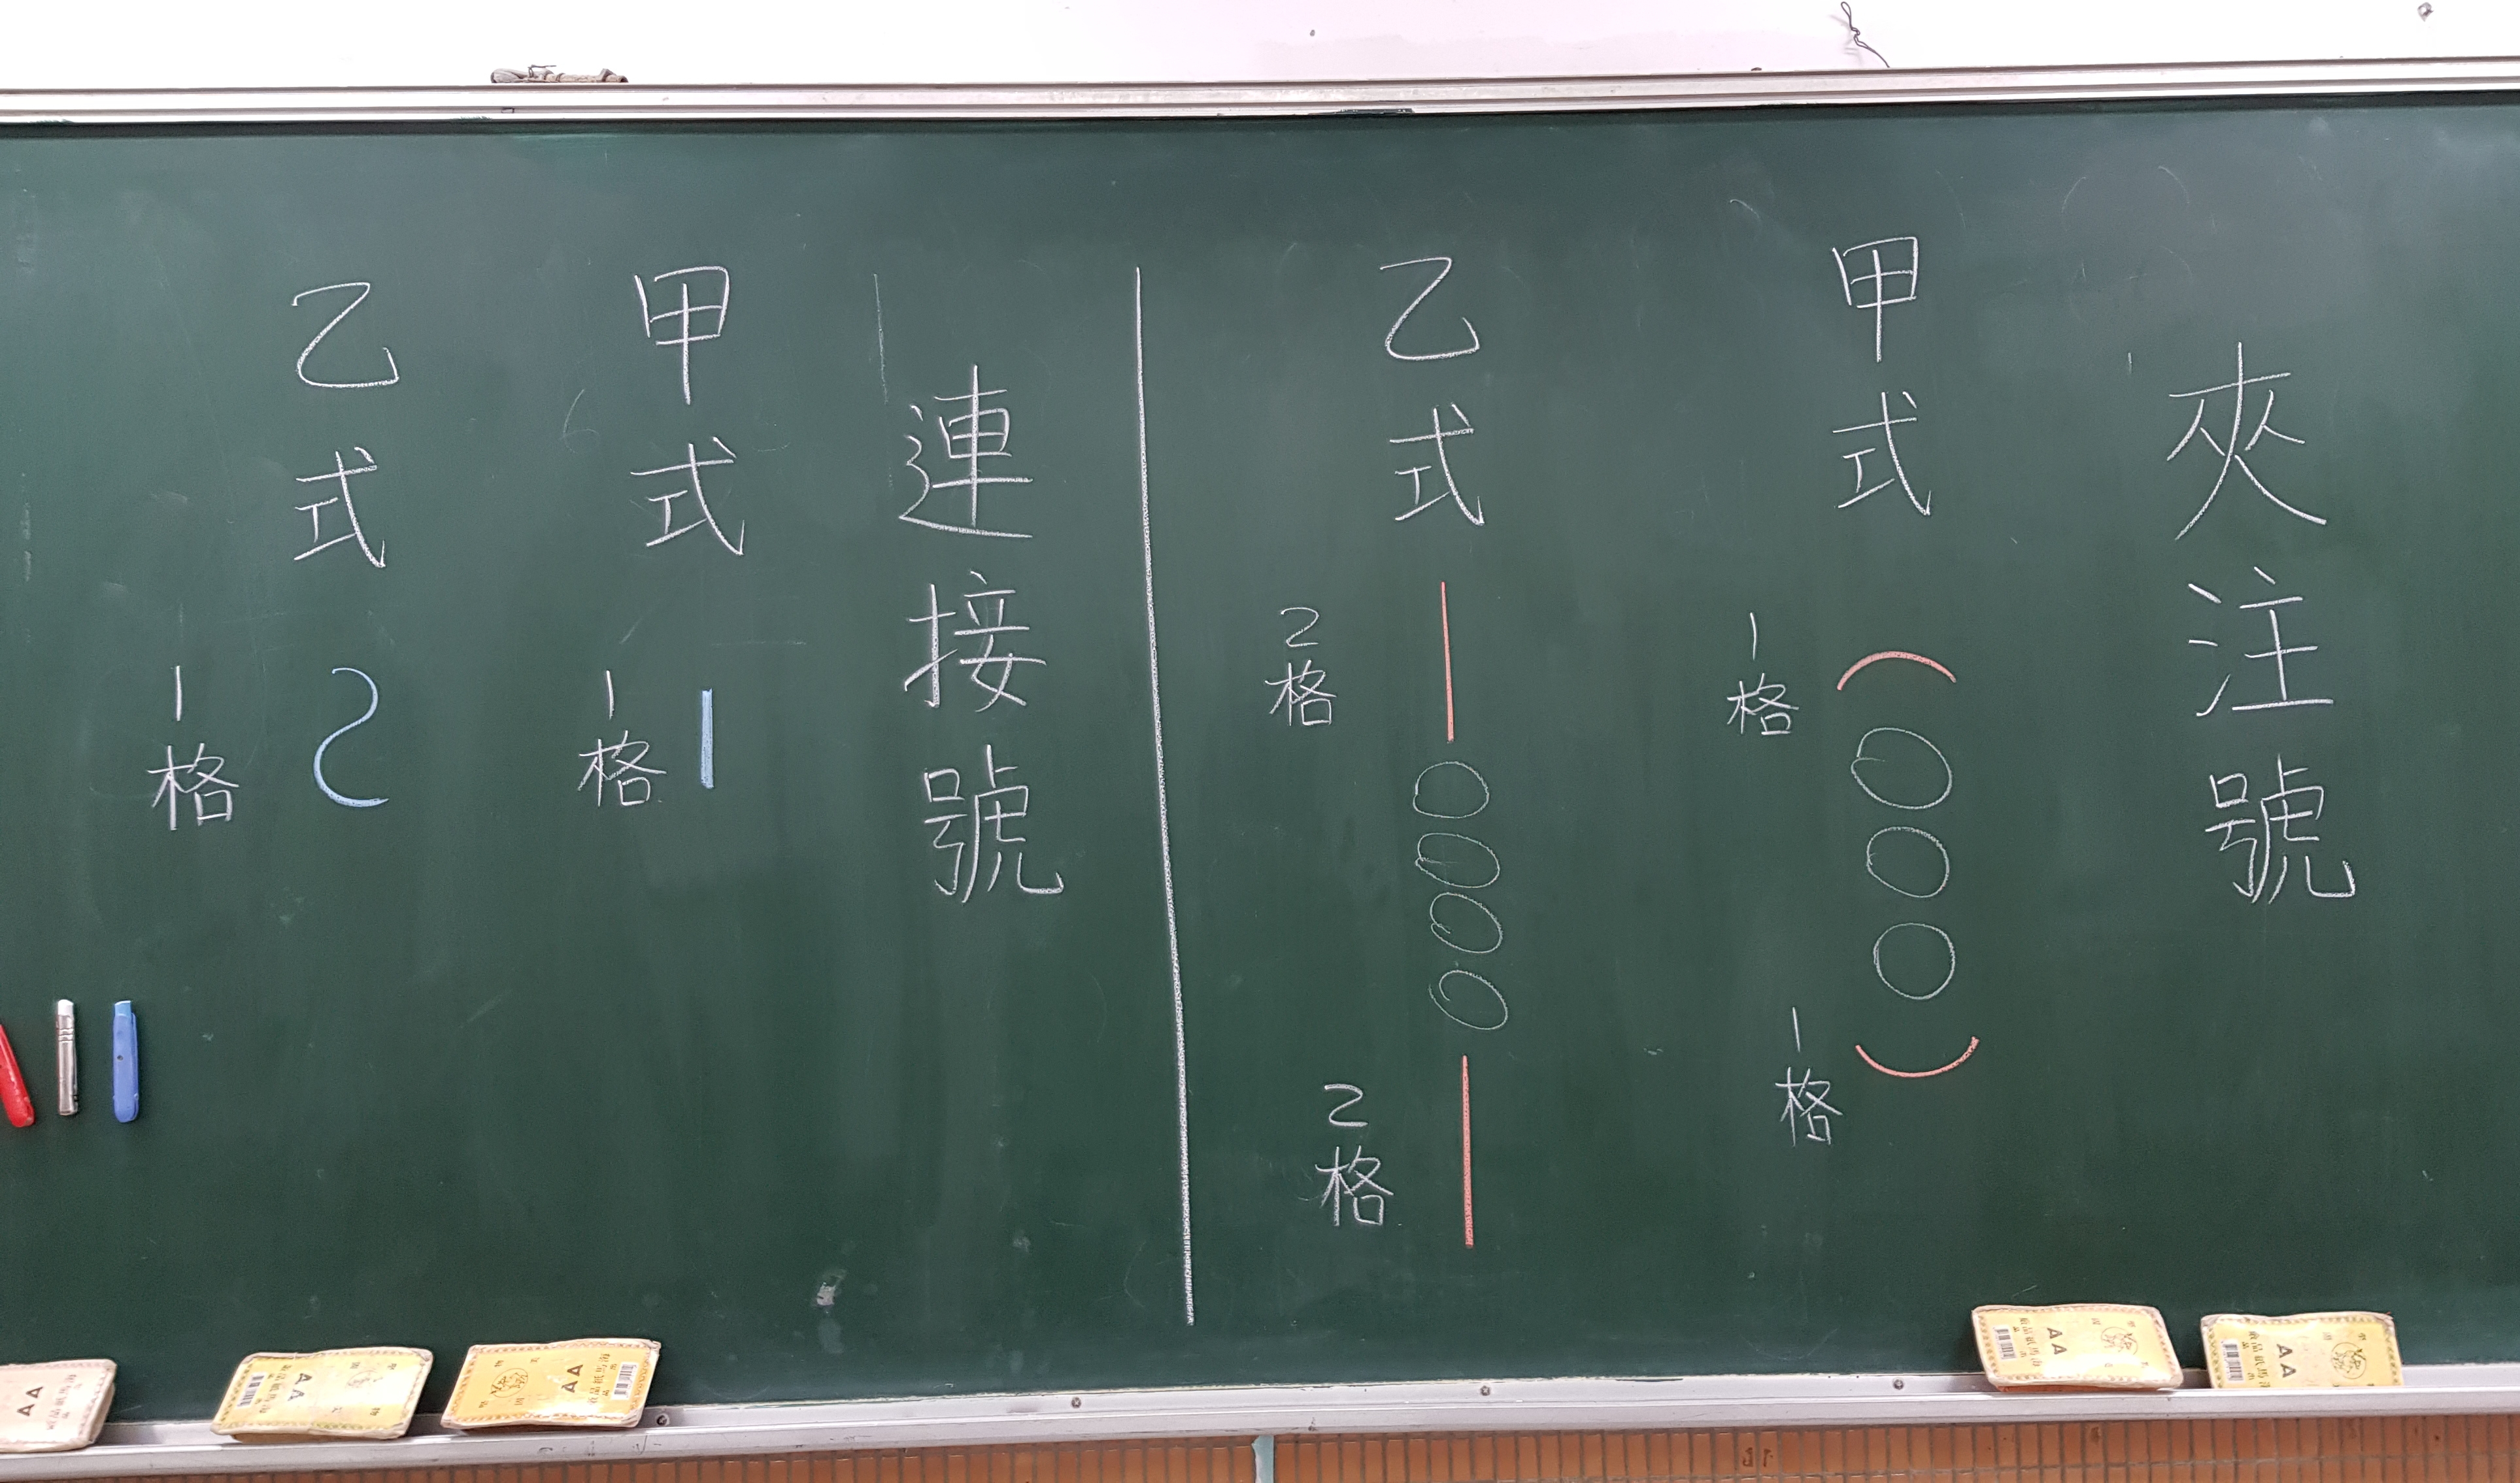 夾注號
甲式（○○○）
1格
1格
乙式—○○○○—
2格
2格
連接號
甲式–
1格
乙式～
1格
AA
AA
AA
AA
AA